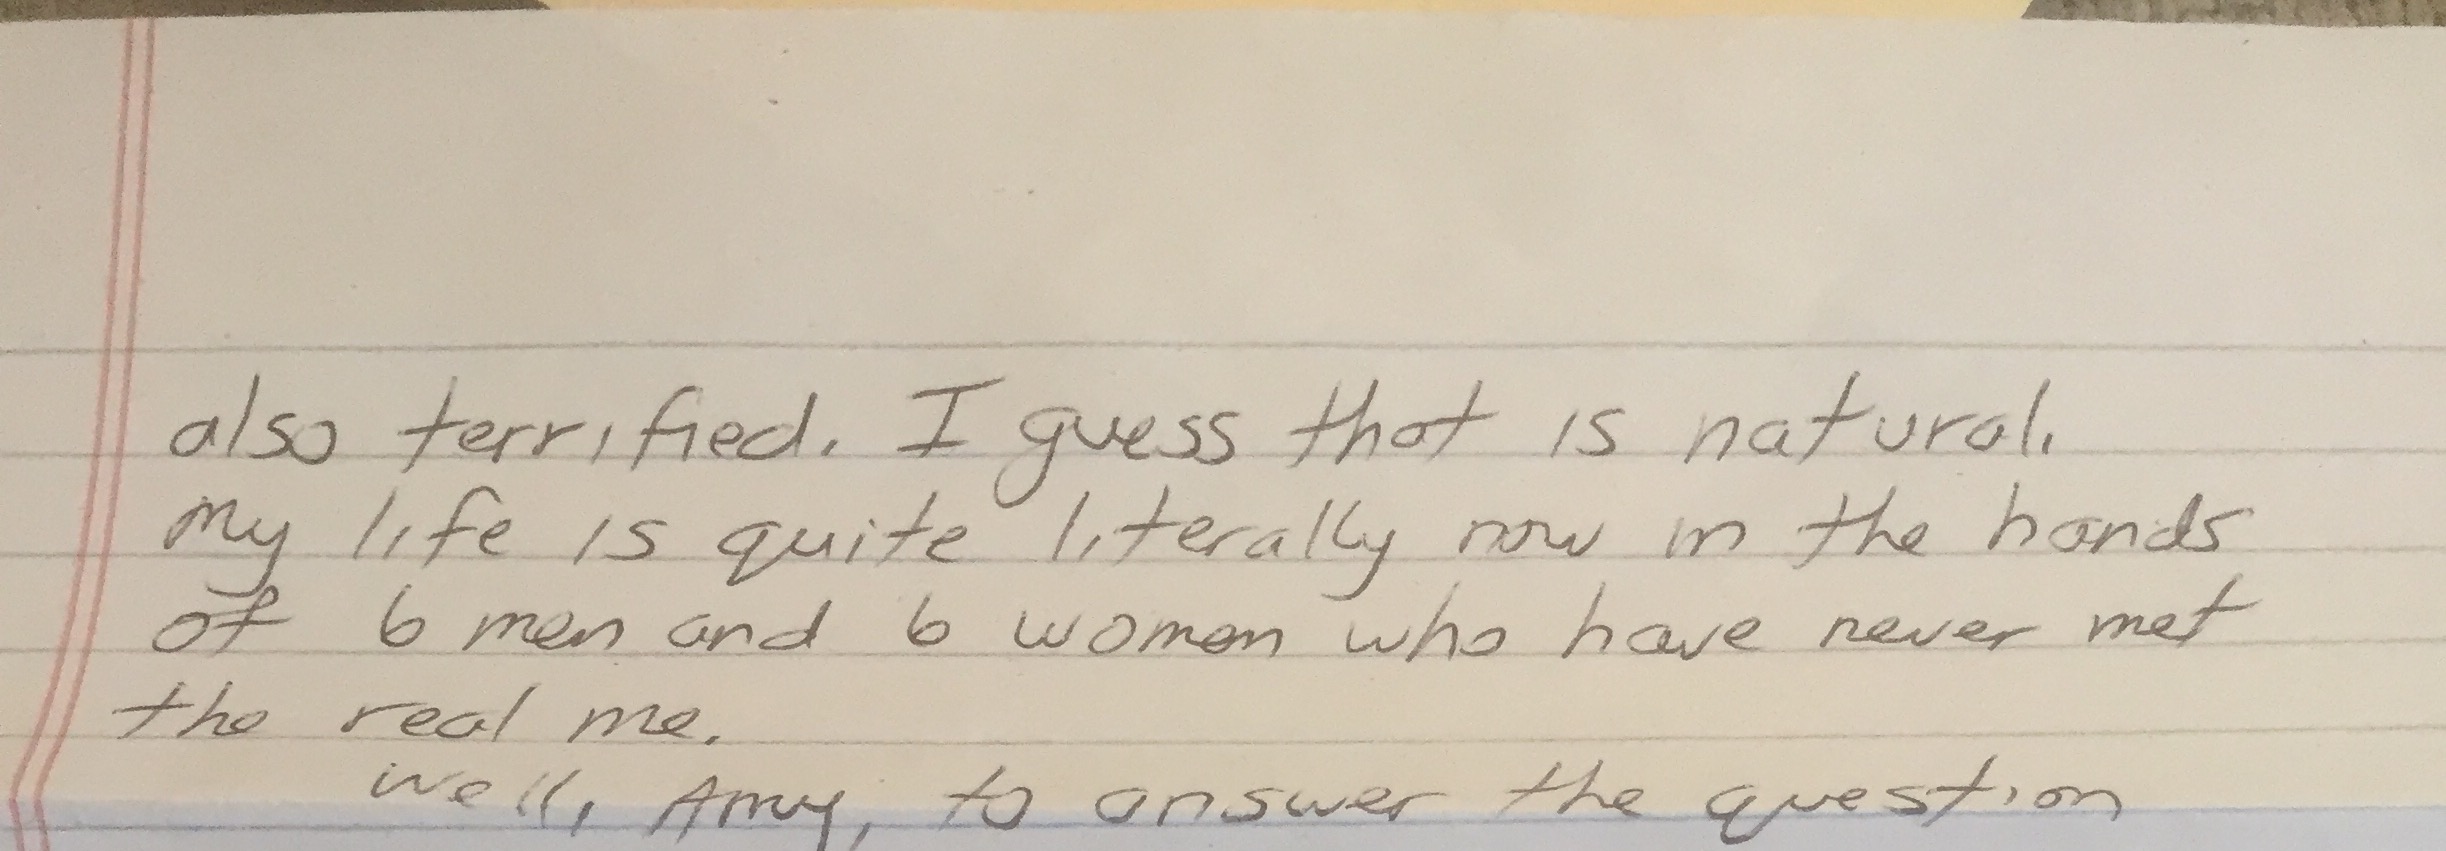 also terrified. I guess that is natural.
My life is quite literally now in the hands
of 6 men and 6 women who have never met
the real me.
Well, Amy, to answer the question